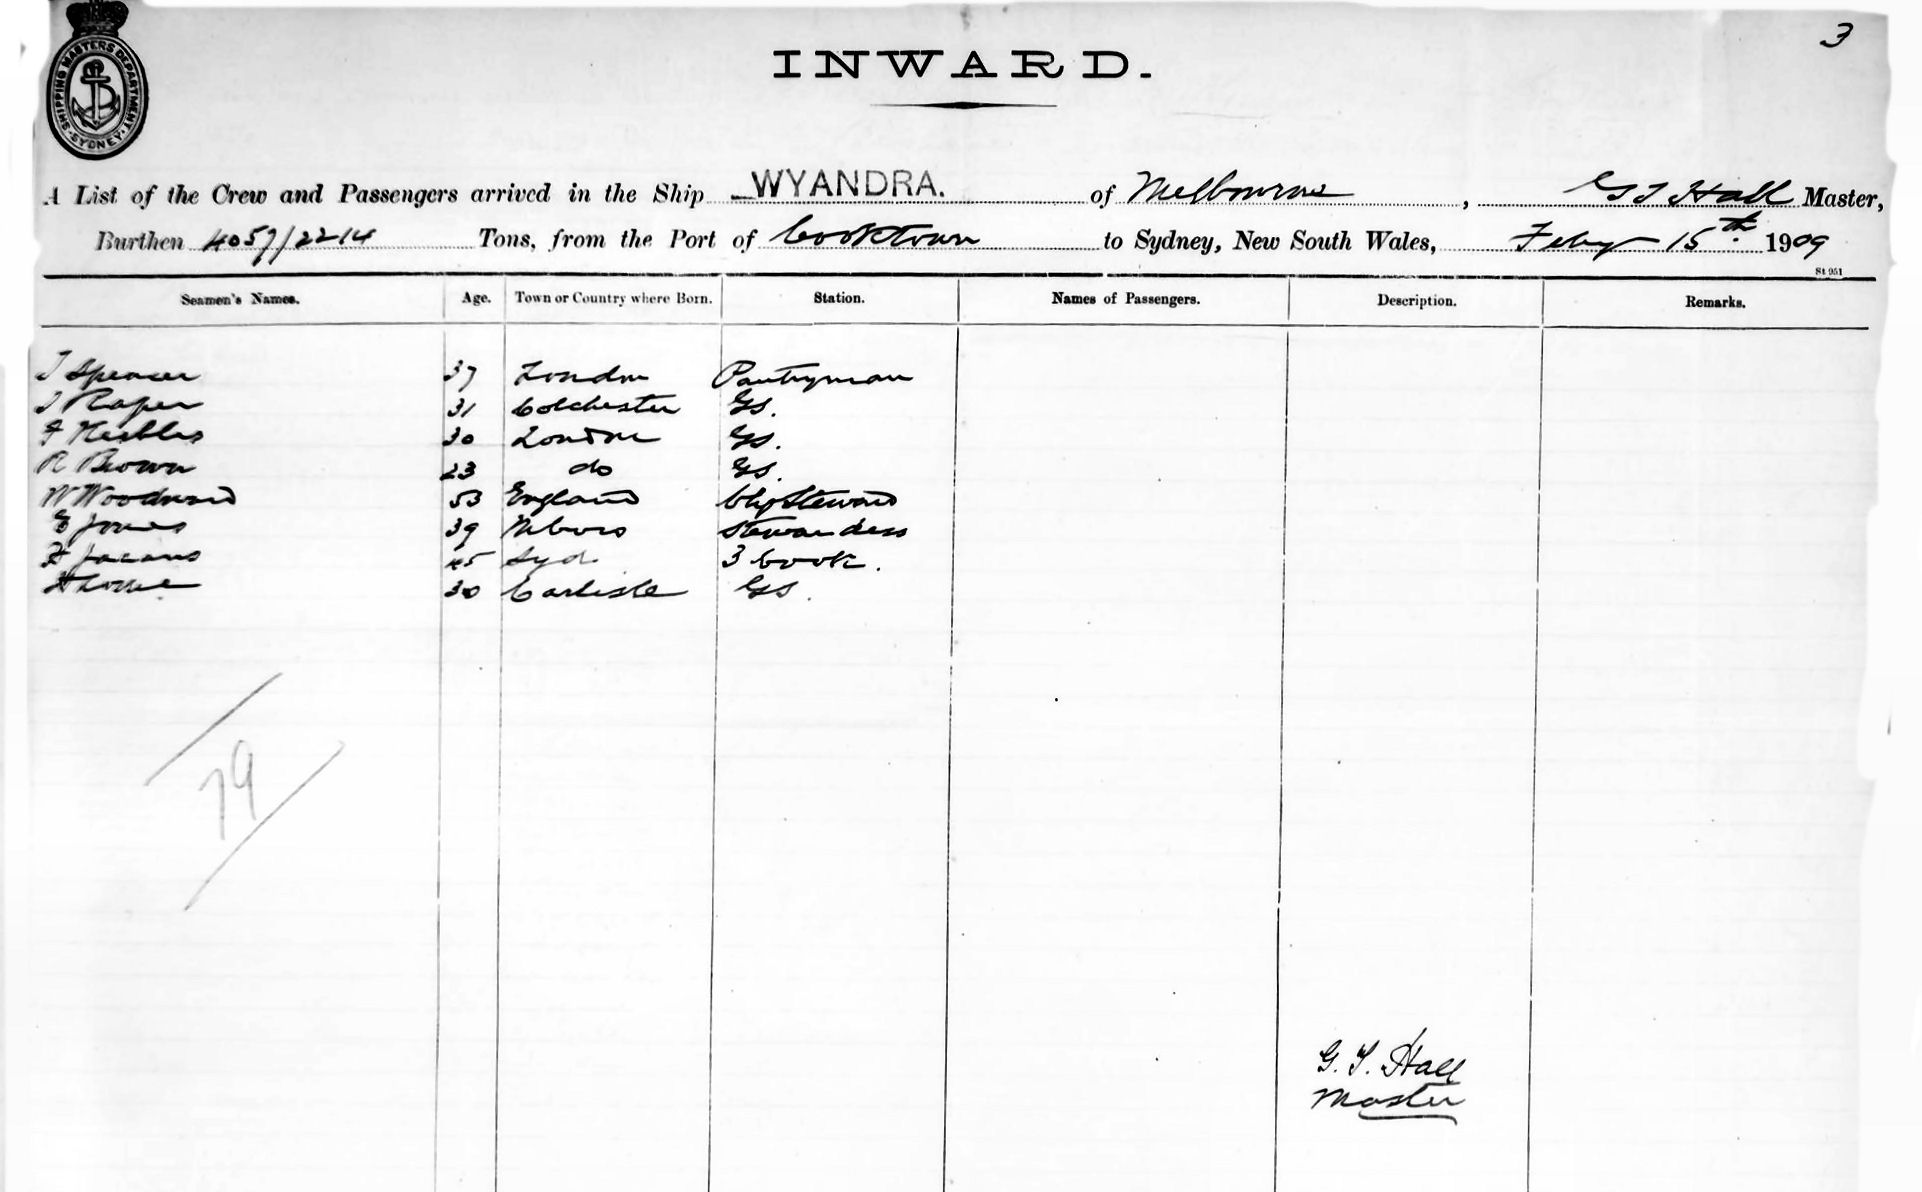 3
SHIPPING MASTERS DEPARTMENT. SYDNEY
INWARD.
A List of the Crew and Passengers arrived in the Ship WYANDRA. of Melbourne, G T Hall Master,
Burthen 4057/2214 Tons, from the Port of Cooktown to Sydney, New South Wales, Feby 15th. 1909
St. 951
Seamen's Names. Age. Town or Country where Born. Station. Names of Passengers. Description. Remarks.
T Spencer 37 London Pantryman
T Raper 31 Colchester GS.
F 30 London GS.
R Brown 23 do GS.
W Woodward 53 England Steward
E Jones 39 Stewardess
45 Syd 3 Cook.
30 Carlisle GS.
79
G. T. Hall
Master